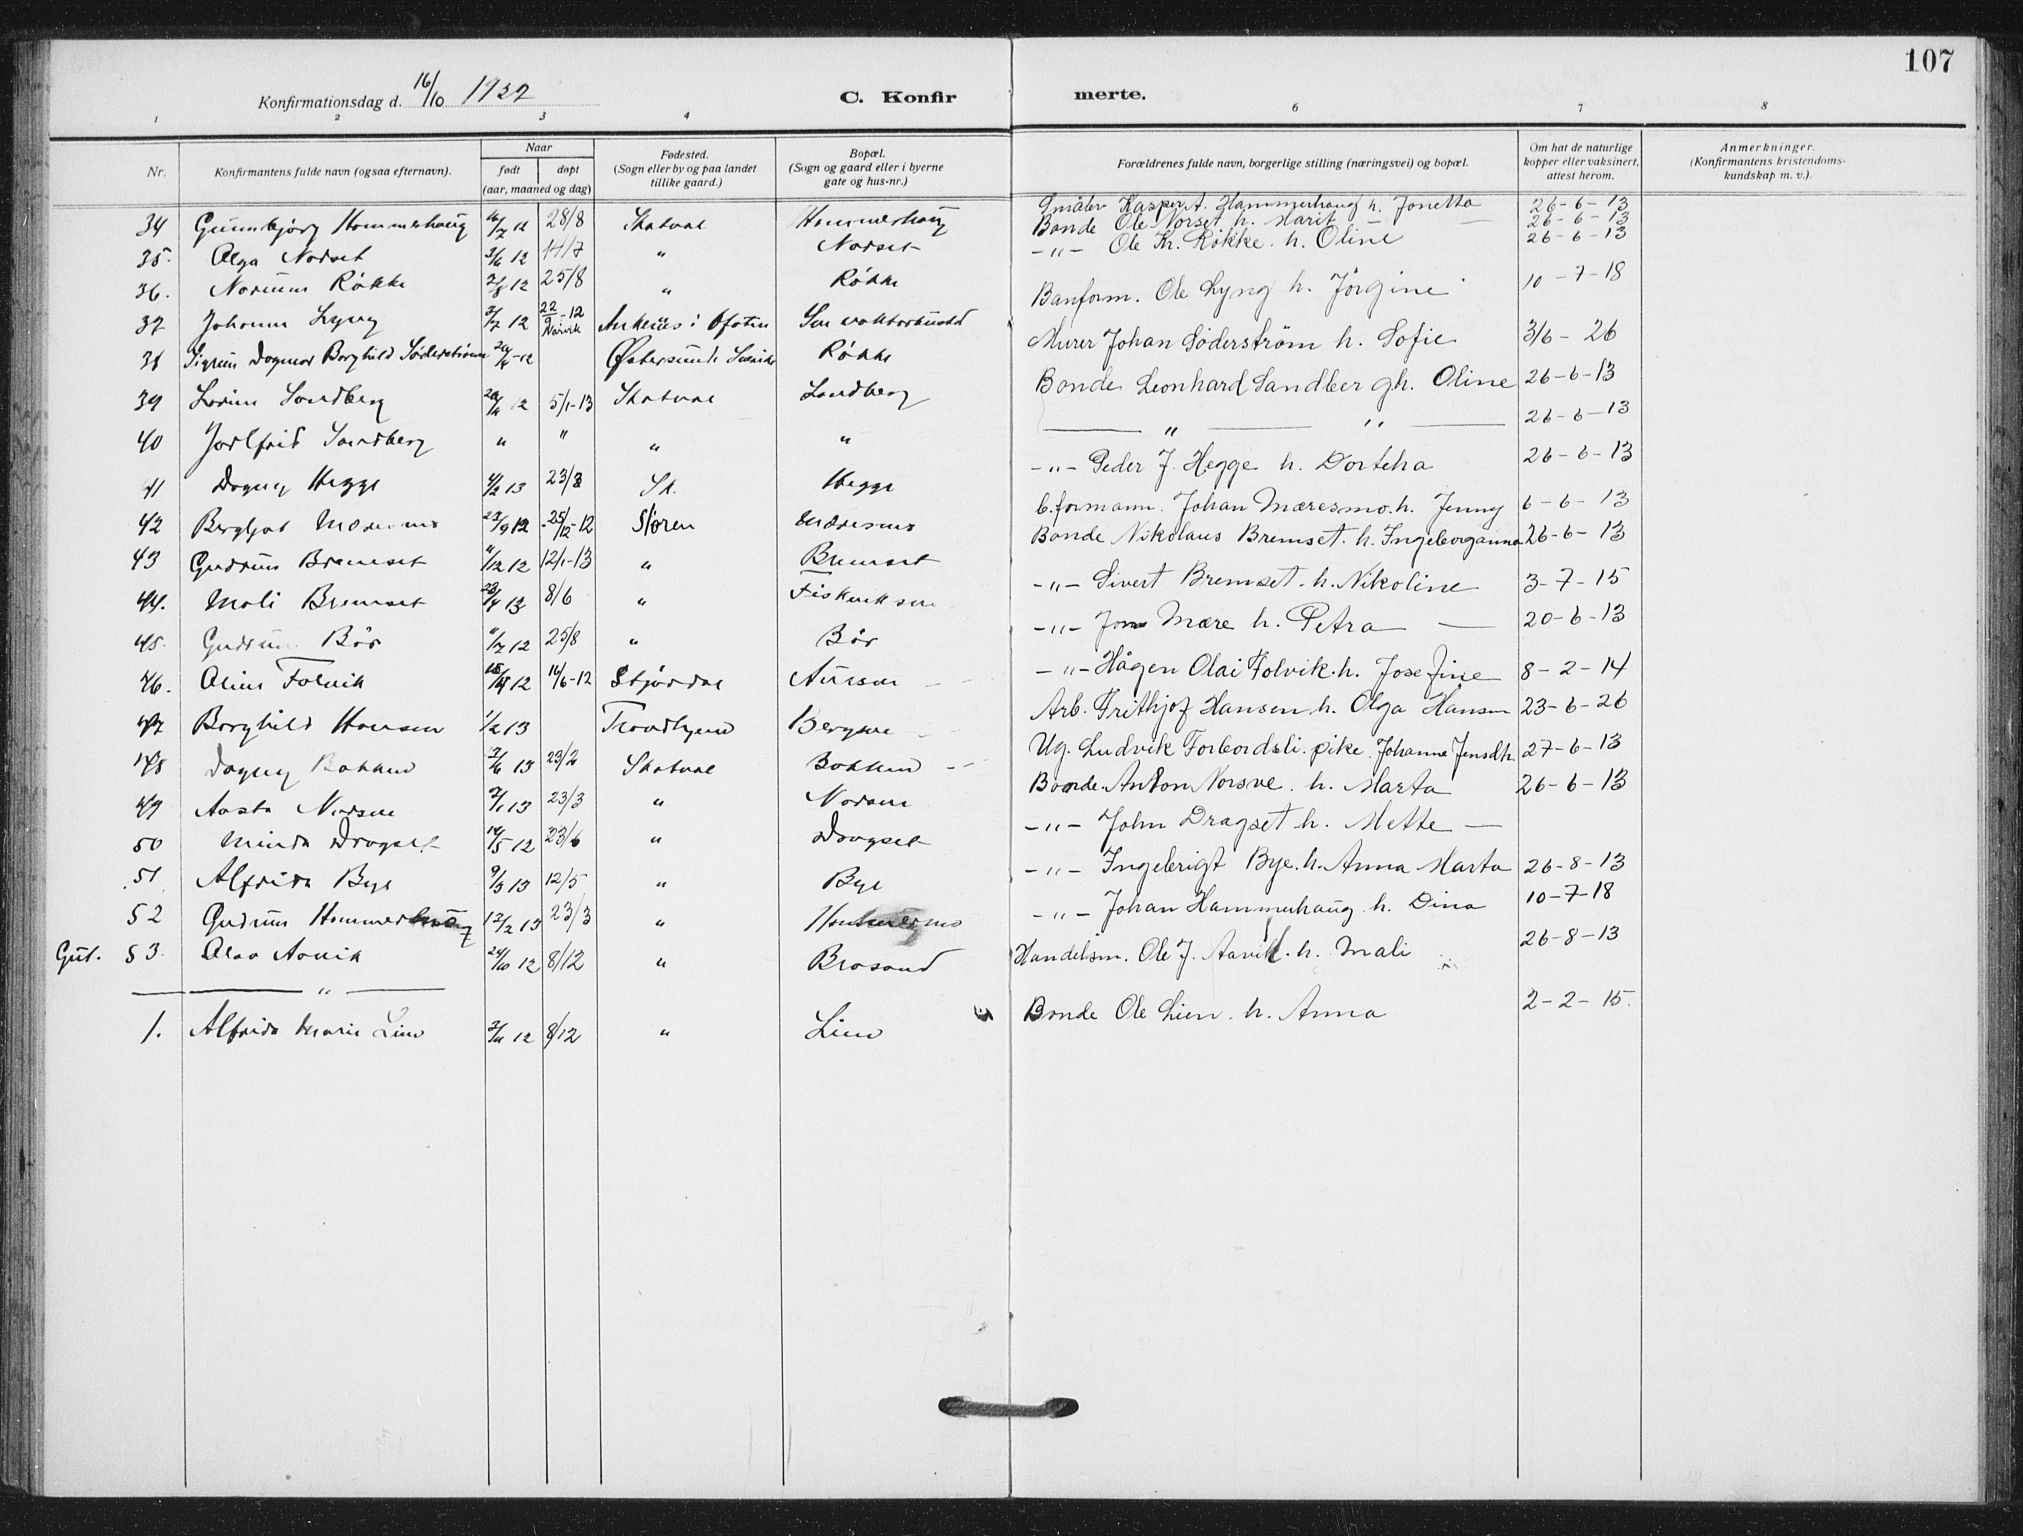 107
Konfirmationsdag d. 16/10 1927
C. Konfir
merte.
1 2 3 4 6 7 8
Nr.
Konfirmantens fulde navn (ogsaa efternavn).
Naar
født døpt
(aar, maaned og dag)
Fødested.
(Sogn eller by og paa landet
tillike gaard.)
Bopæl.
(Sogn og gaard eller i byerne
gate og hus-nr.)
Forældrenes fulde navn, borgerlige stilling (næringsvei) og bopæl.
Om hat de naturlige
kopper eller vaksinert,
attest herom.
Anmerkninger.
(Konfirmantens kristendoms-
kundskap m. v.).
34 Gunnbjørg Hommerhaug 28/8 Skatval Hommerhaug Småbr Kasper A. Hammerhaug h. Jonetta 26-6-13
35. Olga Norset 3/6 12 14/7 " Norset Bonde Ole Norset h. Marit — — 26-6-13
36. Røkke 2/8 12 25/8 " Røkke -"- Ole Kr. Røkke. h. Oline 26-6-13
37 Johann Lyng 3/7 12 22/9-12 Narvik Ankenes i Ofoten Banform. Ole Lyng h. Jørgine 10-7-18
38 Sigrun Dagmar Borghild Søderstrøm Østersund Røkke Murer Johan Söderström h. Sofie 3/6-26
39 Sandberg 5/1-13 Skatval Sandberg Bonde Leonhard Sandberg h. Oline 26-6-13
40 Jorlfrid Sandberg " " " " — " — " — 26-6-13
41 Dagny Hegge 4/2 13 23/3 Sk. Hegge -"- Peder J. Hegge h. Dorthea 26-6-13
42 Bergljot Mæresmo 23/9 12 -25/12-12 Støren Mæresmo b.formann. Johan Mæresmo. h. Jenny 6-6-13
43 Gudrun Bremset 11/12 12 12/1-13 " Bremset Bonde Nikolaus Bremset. h. Ingeborganna 26-6-13
44. Mali Bremset 23/4 13 8/6 " -"- Sivert Bremset. h. Nikoline 3-7-15
45. Gudrun Bår 11/7 12 25/8 " Bår -"- Jon Mære h. Petra — 20-6-13
46. Folvik 16/6-12 Stjørdal -"- Hågen Olai Folvik. h. Josefine 8-2-14
47 Borghild Hansen 1/2 13 Trondhjem Arb. Frithjof Hansen h. Olga Hansen 23-6-26
48 Dagny Bakken 23/2 Skatval Bakken — Ug. Ludvik Forbordsli. pike. Johanna Jensdtr. 27-6-13
49 Aasta Norsve 2/1 13 23/3 " Norsve Bonde. Anton Norsve. h. Marta 26-6-13
50 Minda Dragset 14/5 12 23/6 " Dragset -"- John Dragset h. Mette —
51 Alfrida Bye 9/3 13 12/5 " Bye -"- Ingebrigt Bye. h. Anna Marta 26-8-13
52 Gudrun Hommerhaug 17/2 13 23/3 " -"- Johan Hammerhaug h. Dina 10-7-18
Gut. 53. Olav Aavik 24/10 12 8/12 " Handelsm. Ole J. Aavik. h. Mali 26-8-13
— — " —
1. Alfrida Marie Lien 3/11 12 8/12 " Lien Bonde Ole Lien. h. Anna 2-2-15.